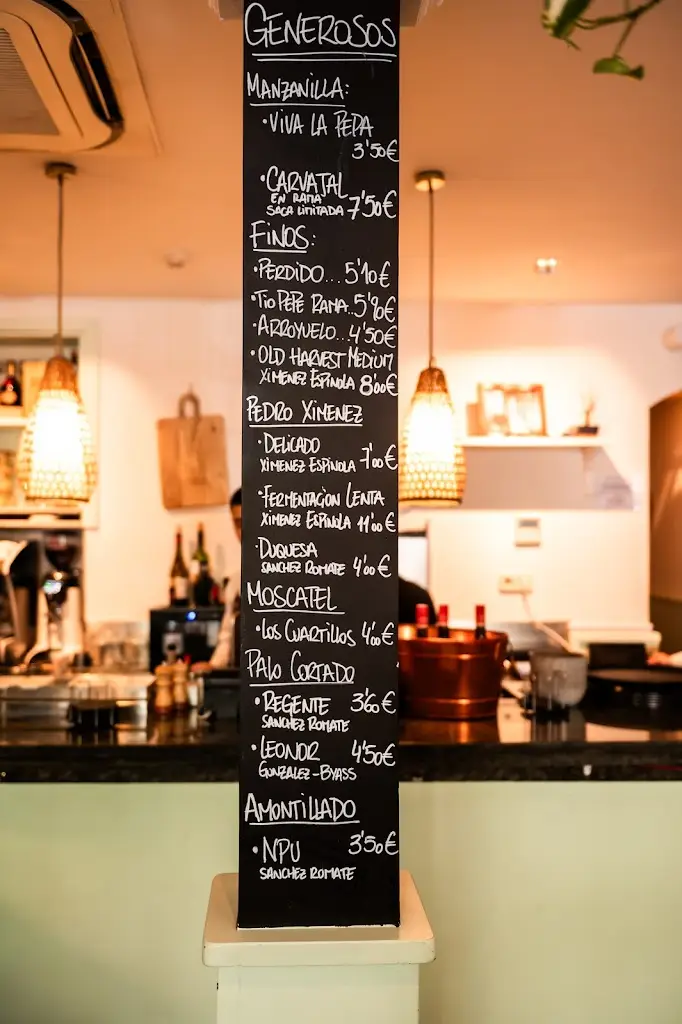 GENEROSOS
MANZANILLA:
• VIVA LA PEPA
3'50€
• CARVATAL
EN RAMA
SACA LIMITADA 7'50€
FINOS:
• PERDIDO... 5'10€
• TIO PEPE RAMA.. 5'80€
• ARROYUELO... 4'50€
• OLD HARVEST MEDIUM
XIMENEZ ESPINOLA 8'00€
PEDRO XIMENEZ
• DELICADO
XIMENEZ ESPINOLA 7'00€
• FERMENTACION LENTA
XIMENEZ ESPINOLA 11'00€
• DUQUESA
SANCHEZ ROMATE 4'00€
MOSCATEL
• LOS CUARTILLOS 4'00€
PALO CORTADO
• REGENTE 3'60€
SANCHEZ ROMATE
• LEONOR 4'50€
GONZALEZ-BYASS
AMONTILLADO
• NPU 3'50€
SANCHEZ ROMATE